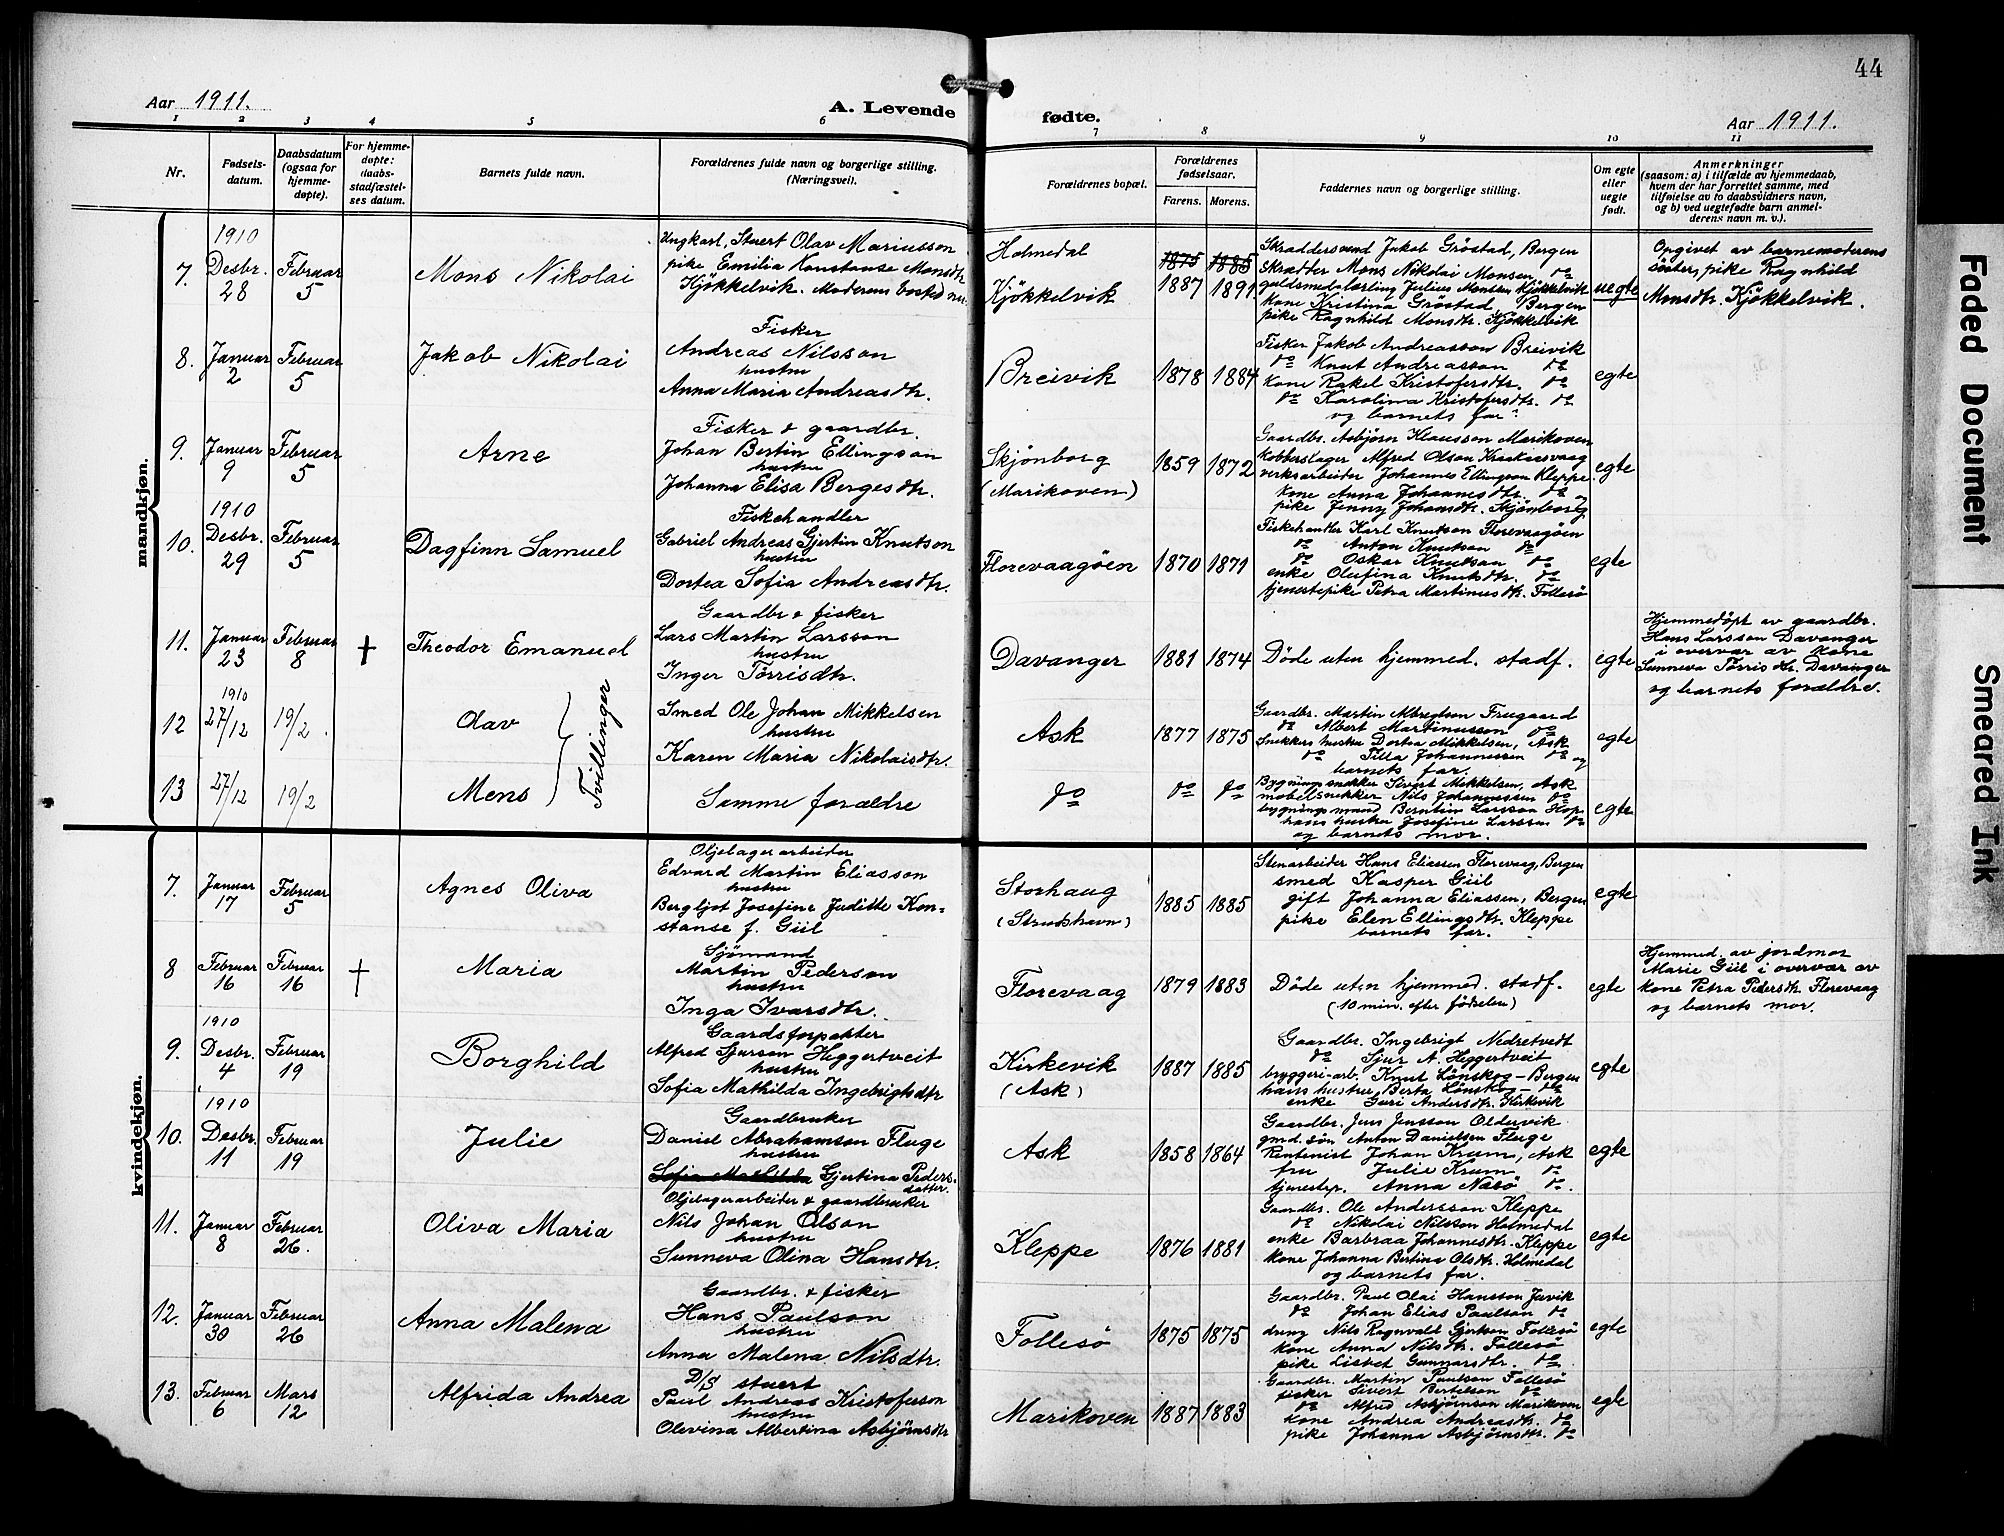 44
Aar 1911.
A. Levende fødte.
Aar 1911.
1 2 3 4 5 6 7 8 9 10 11
Nr.
Fødsels-
datum.
Daabsdatum
(ogsaa for
hjemme-
døpte).
For hjemme-
døpte:
daabs-
stadfæstel-
ses datum.
Barnets fulde navn.
Forældrenes fulde navn og borgerlige stilling.
(Næringsvei).
Forældrenes bopæl.
Forældrenes
fødselsaar.
Farens. Morens.
Faddernes navn og borgerlige stilling.
Om egte
eller
uegte
født.
Anmerkninger
(saasom: a) i tilfælde av hjemmedaab,
hvem der har forrettet samme, med
tilføielse av to daabsvidners navn,
og b) ved uegtefødte barn anmel-
derens navn m. v.).
mandkjøn.
7.
1910
Desbr.
28
Februar
5
Mons Nikolai
Ungkarl, Stuert Olav Mariusson
pike Emilia Konstanse Monsdtr
Kjøkkelvik. Moderens bosted nu:
Holmedal
Kjøkkelvik
1875 1885
1887 1891
Skræddersvend Jakob Grøstad, Bergen
Skrædder Mons Nikolai Monsen do
guldsmedlærling Julius Monssen Kjøkkelvik
kone Kristina Grøstad, Bergen
pike Ragnhild Monsdtr. Kjøkkelvik
uegte
Opgivet av barnemoderens
søster, pike Ragnhild
Monsdtr. Kjøkkelvik.
8.
Januar
2
Februar
5
Jakob Nikolai
Fisker
Andreas Nilsson
hustru
Anna Maria Andreasdtr.
Breivik
1878 1884
Fisker Jakob Andreasson Breivik
do Knut Andreasson do
kone Rakel Kristofersdtr. do
do Karolina Kristofersdtr. do
og barnets far.
egte
9.
Januar
9
Februar
5
Arne
Fisker & gaardbr.
Johan Bertin Ellingson
hustru
Johanna Elisa Bergesdtr.
Skjønborg
(Marikoven)
1859 1872
Gaardbr. Asbjørn Klausson Marikoven
kobberslager Alfred Olson
verksarbeider Johannes Ellingson Kleppe
kone Anna Johannesdtr. do
pike Jenny Johansdtr. Skjønborg
egte
10.
1910
Desbr.
29
Februar
5
Dagfinn Samuel
Fiskehandler
Gabriel Andreas Gjertin Knutson
hustru
Dortea Sofia Andreasdtr.
Florevaagøen
1870 1871
Fiskehandler Karl Knutson Florevaagøen
do Anton Knutson do
do Oskar Knutson do
enke Olufina Knutsdtr. do
tjenestepike Petra Martinusdtr. Follesø
egte
11.
Januar
23
Februar
8
†
Theodor Emanuel
Gaardbr & fisker
Lars Martin Larsson
hustru
Inger Tørrisdtr.
Davanger
1881 1874
Døde uten hjemmed. stadf.
egte
Hjemmedøpt av gaardbr.
Hans Larsson Davanger
i overvær av kone
Sunneva Tørrisdtr. Davanger
og barnets forældre.
12
1910
27/12
19/2.
Olav
Tvillinger
Smed Ole Johan Mikkelsen
hustru
Karen Maria Nikolaisdtr.
Ask
1877 1875
Gaardbr. Martin Albregtson Frugaard
do Albert Martinusson do
Snekkers hustru Dortea Mikkelsen, Ask
do Tilla Johannessen do og
barnets far.
egte
13
27/12
19/2
Mons
Samme forældre
do
do do
Bygningssnekker Sivert Mikkelsen, Ask
møbelsnekker Nils Johannessen do
bygningsmand Berntin Larsson Hop
hans hustru Josefine Larssen do
og barnets mor.
egte
kvindekjøn.
7.
Januar
17
Februar
5
Agnes Oliva
Oljelagerarbeider
Edvard Martin Eliasson
hustru
Bergljot Josefine Juditte Kon-
stanse f. Giil
Storhaug
(Strudshavn)
1885 1885
Stenarbeider Hans Eliassen Florevaag, Bergen
smed Kasper Giil
gift Johanna Eliassen, Bergen
pike Elen Ellingsdtr. Kleppe
barnets far.
egte
8
Februar
16
Februar
16
†
Maria
Sjømand
Martin Pederson
hustru
Inga Ivarsdtr.
Florevaag
1879 1883
Døde uten hjemmed. stadf.
(10 min. efter fødselen)
egte
Hjemmed. av jordmor
Marie Giil i overvær av
kone Petra Pedersdtr. Florevaag
og barnets mor.
9.
1910
Desbr.
4
Februar
19
Borghild
Gaardsforpakter
Alfred Sjurson Heggertveit
hustru
Sofia Mathilda Ingebrigtsdtr
Kirkevik
(Ask)
1887 1885
Gaardbr. Ingebrigt Nedretvedt
do Sjur A. Heggertveit
bryggeri-arb. Knut Lønskog - Bergen
hans hustru Berta Lønskog - do
enke Guri Andersdtr. Kirkevik
egte
10.
1910
Desbr.
11
Februar
19
Julie
Gaardbruker
Daniel Abrahamson Fluge
hustru
Sofia Mathilda Gjertina Peders-
datter.
Ask
1858 1864
Gaardbr. Jens Jensson Oldervik
gmd. søn Anton Danielsen Fluge
Rentenist Johan Krum, Ask
fru Julie Krum do
tjenestep. Anna Næsø do.
egte
11.
Januar
8
Februar
26.
Oliva Maria
Oljelagerarbeider & gaardbruker
Nils Johan Olson
hustru
Sunneva Olina Hansdtr.
Kleppe
1876 1881
Gaardbr. Ole Andersson Kleppe
do Nikolai Nilsson Holmedal
enke Barbraa Johannesdtr. Kleppe
kone Johanna Bertina Olsdtr. Holmedal
og barnets far.
egte
12.
Januar
30
Februar
26
Anna Malena
Gaardbr. & fisker
Hans Paulson
hustru
Anna Malena Nilsdtr.
Follesø
1875 1875
Gaardbr. Paul Olai Hansson Juvik
do Johan Elias Paulson do
dreng Nils Ragnvald Gjertson Follesø
kone Anna Nilsdtr. Follesø
pike Lisbet Gunnarsdtr. do
egte
13.
Februar
6
Mars
12
Alfrida Andrea
D/S stuert
Paul Andreas Kristofersson
hustru
Olevina Albertina Asbjørnsdtr
Marikoven
1887 1883
Gaardbr. Martin Paulson Follesø
fisker Sivert Bertelson do
do Alfred Asbjørnson Marikoven
kone Andrea Andreasdtr. do
pike Johanna Asbjørnsdtr. do
egte
Faded Document
Smeared Ink